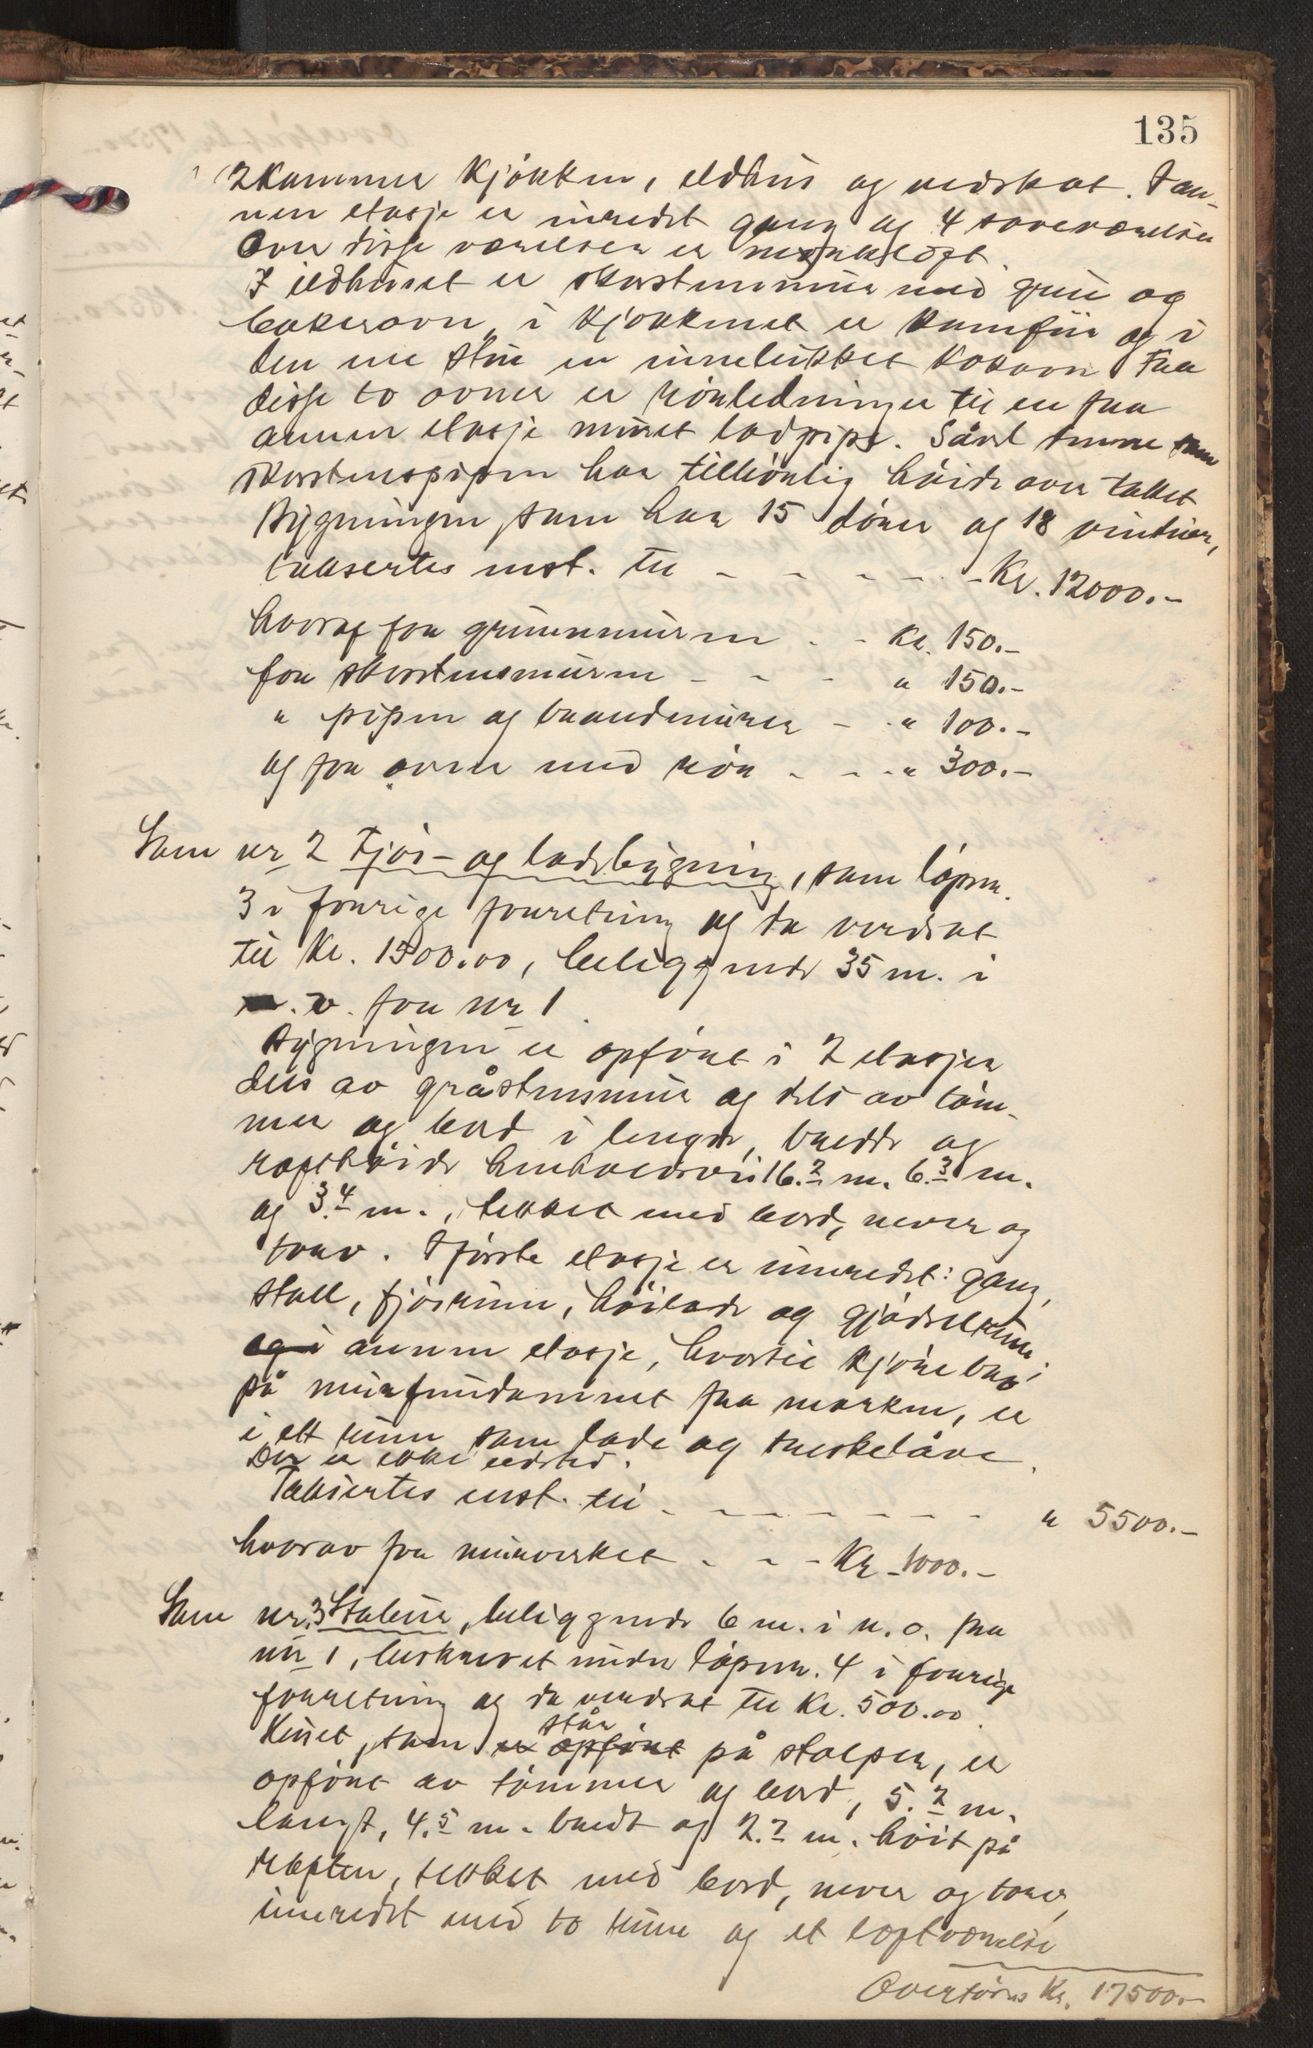 135
2 kammer kjøkken, eldhus og vedskot. I an-
nen etasje er inredet gang og 4 soveværelser
Over disse værelser er mørkeloft.
I ildhuset er skorstensmur med grue og
bakerovn, i kjøkkenet er komfur og i
den ene stue en innelukket kokovn. Fra
disse to ovner er rørledninger til en fra
annen etasje muret lodpipe. Såvel denne som
skorstenspipen har tilbørlig høide over taket
Bygningen, som har 15 dører og 18 vinduer,
taksertes enst. til - - - - - - Kr. 12000.-
hvorav for grunnmuren - - Kr. 150.-
for skorstensmuren - - - " 150.-
" pipen og brandmurer - - " 100.-
og for ovne med rør - - - " 300.-
Som nr 2 Fjøs- og ladebygning, som løpenr.
3 i forrige forretning og da verdsat
til Kr. 1500.00, beliggende 35 m. i
v. for nr 1
Bygningen er opført i 2 etasjer
dels av gråstensmur og dels av tøm-
mer og bord i lengde, bredde og
røsthøide henholdsvis 16.2 m. 6.3 m.
og 3.4 m., tekket med bord, never og
torv. I første etasje er innredet: gang,
stall, fjøsrum, høilade og gjødselrum
og i annen etasje, hvortil kjørebro
på murfundament fra marken, er
i ett rum som lade og treskelåve.
Der er ikke ildsted.
Taksertes enst. til - - - - - - - " 5500.-
hvorav for murverket - - - Kr. 1000.-
Som nr. 3 Stabur, beliggende 6 m. i n.o. fra
nr 1, beskrevet under løpenr. 4 i forrige
forretning og da verdsat til Kr. 500.00.
Huset, som er opført står på stolper, er
opført av tømmer og bord, 5.2 m.
langt, 4.5 m. bredt og 2.2 m. høit på
røsten, tekket med bord, never og torv,
innredet med to rum og et loftværelse
Overføres Kr. 17500.-